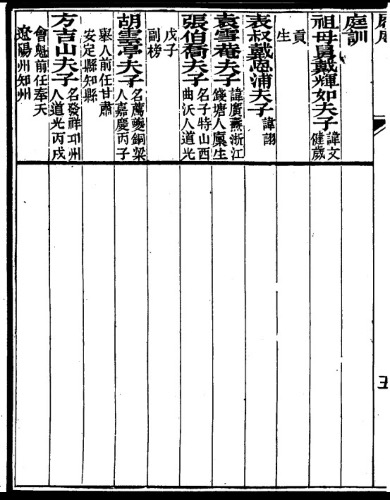 庭訓
祖母舅戴輝如夫子
諱文
健歲
貢
生
表叔戴恩浦夫子
諱詡
袁雪菴夫子
諱賡燕浙江
錢塘人廩生
張伯喬夫子
名子特山西
曲沃人道光
戊子
副榜
胡雲亭夫子
名薦夔銅梁
人嘉慶丙子
舉人前任甘肅
安定縣知縣
方吉山夫子
名發祥邛州
人道光丙戌
會魁前任奉天
遼陽州知州